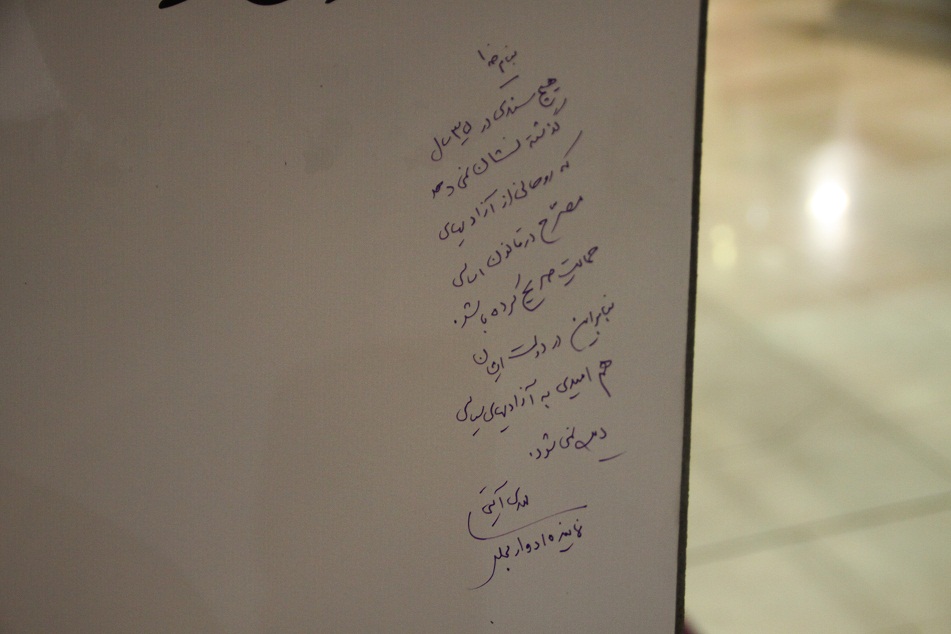 بنام خدا
هیچ سندی در ۳۵ سال
گذشته نشان نمی دهد
که روحانی از آزادیهای
مصرح در قانون اساسی
حمایت صریح کرده باشد.
بنابراین در دولت ایشان
هم امیدی به آزادیهای سیاسی
دیده نمی شود.
مهدی آیتی
نماینده ادوار مجلس